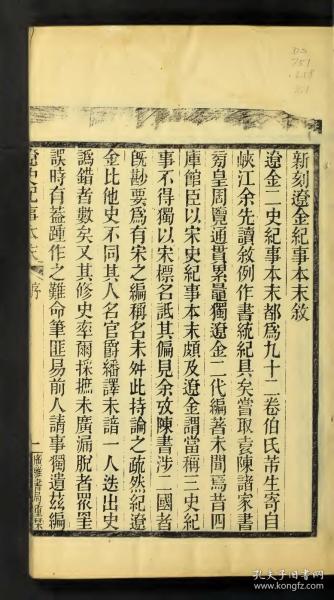 DS
751
新刻遼金紀事本末敘
遼金二史紀事本末都爲九十二卷伯氏芾生寄自
峽江余先讀敘例作書統紀具矣嘗取袁陳諸家書
菊皇周覽通貫累最獨遼金二代編著未聞爲昔四
庫館臣以宋史紀事本末頗及遼金謂當稱三史紀
事不得獨以宋標名詆其偏見余攷陳書涉二國者
旣尠要爲有宋之編稱名未舛此持論之疏然紀遼
金比他史不同其人名官爵繙譯未諳一人迭出史
譌錯者數矣又其修史率爾採摭未廣漏脫者眾羣
誤時有蓋踵作之難命筆匪易前人請事獨遺茲編
遼史紀事本末
序
一
廣雅書局重栞
孔夫子旧书网